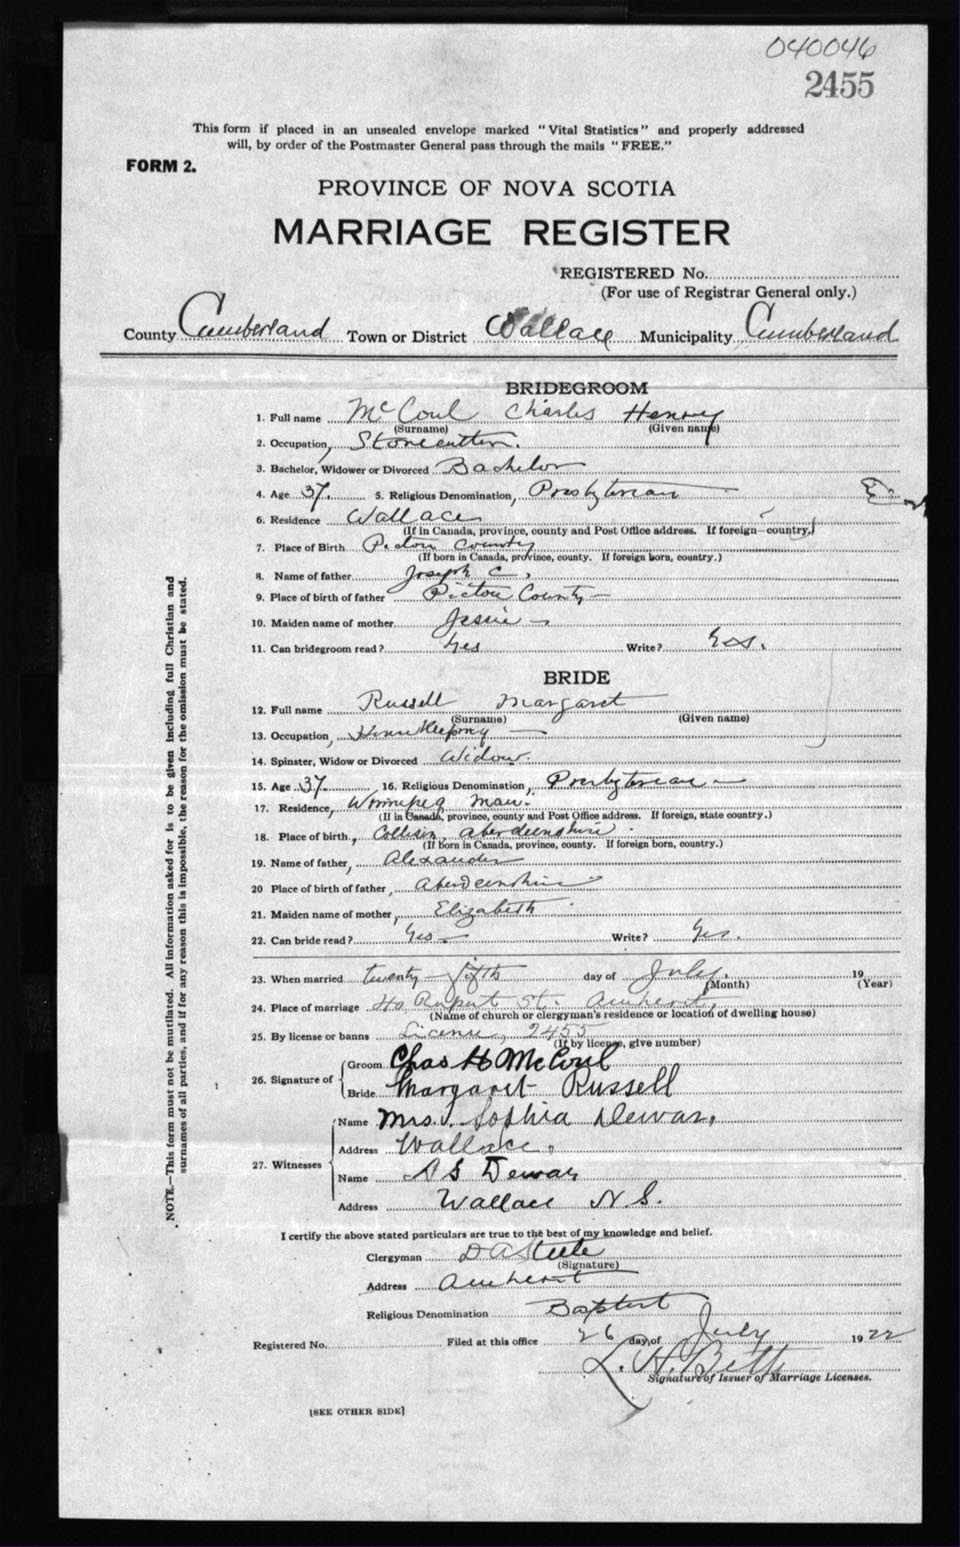 040046
2455
This form if placed in an unsealed envelope marked "Vital Statistics" and properly addressed
will, by order of the Postmaster General pass through the mails "FREE."
FORM 2.
PROVINCE OF NOVA SCOTIA
MARRIAGE REGISTER
REGISTERED No.
(For use of Registrar General only.)
County Cumberland Town or District Wallace Municipality Cumberland
BRIDEGROOM
1. Full name McCoul Charles Henry
(Surname) (Given name)
2. Occupation, Stonecutter.
3. Bachelor, Widower or Divorced Bachelor
4. Age 37. 5. Religious Denomination, Presbyterian
6. Residence Wallace
(If in Canada, province, county and Post Office address. If foreign country.)
7. Place of Birth Pictou County
(If born in Canada, province, county. If foreign born, country.)
8. Name of father Joseph C.
9. Place of birth of father Pictou County
10. Maiden name of mother Jessie
11. Can bridegroom read? Yes Write? Yes.
BRIDE
12. Full name Russell Margaret
(Surname) (Given name)
13. Occupation, Housekeeping
14. Spinster, Widow or Divorced Widow.
15. Age 37. 16. Religious Denomination, Presbyterian
17. Residence, Winnipeg Man.
(If in Canada, province, county and Post Office address. If foreign, state country.)
18. Place of birth, Aberdeenshire.
(If born in Canada, province, county. If foreign born, country.)
19. Name of father, Alexander
20 Place of birth of father, Aberdeenshire
21. Maiden name of mother, Elizabeth
22. Can bride read? Yes Write? Yes.
23. When married twenty-fifth day of July. 19
(Month) (Year)
24. Place of marriage 40 Rupert St. Amherst,
(Name of church or clergyman's residence or location of dwelling house)
25. By license or banns License, 2455
(If by license, give number)
26. Signature of Groom Chas H McCoul
Bride Margaret Russell
27. Witnesses Name Mrs. Sophia Dewar,
Address Wallace,
Name A S Dewar
Address Wallace N.S.
I certify the above stated particulars are true to the best of my knowledge and belief.
Clergyman D A Steele
(Signature)
Address Amherst
Religious Denomination Baptist
Registered No. Filed at this office 26 day of July 1922
L. H. Betts
Signature of Issuer of Marriage Licenses.
[SEE OTHER SIDE]
NOTE.—This form must not be mutilated. All information asked for is to be given including full Christian and
surnames of all parties, and if for any reason this is impossible, the reason for the omission must be stated.